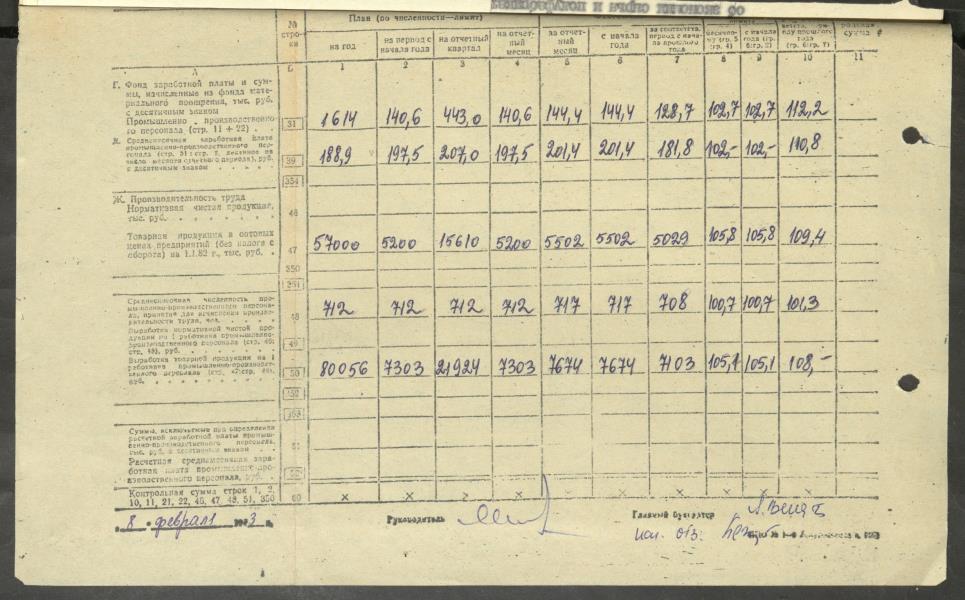 № строки
План (по численности—лимит)
на год
на период с начала года
на отчетный квартал
на отчетный месяц
за отчетный месяц
с начала года
за соответств. период с начала прошлого года
(гр. 4)
с начала года
(гр. 6:гр. 7)
сумма
А Б 1 2 3 4 5 6 7 8 9 10 11
Г. Фонд заработной платы и суммы, начисленные из фонда материального поощрения, тыс. руб. с десятичным знаком
Промышленно-производственного персонала (стр. 11 + 22)
31 1614 140,6 443,0 140,6 144,4 144,4 128,7 102,7 102,7 112,2
Среднемесячная заработная плата промышленно-производственного персонала
с десятичным знаком
39 188,9 197,5 207,0 197,5 201,4 201,4 181,8 102,- 102,- 110,8
354
Ж. Производительность труда
Нормативная чистая продукция, тыс. руб.
46
Товарная продукция в оптовых ценах предприятий (без налога с оборота) на 1.1.82 г., тыс. руб.
47 57000 5200 15610 5200 5502 5502 5029 105,8 105,8 109,4
350
351
Среднесписочная численность промышленно-производственного персонала, принятая для исчисления производительности труда, чел.
48 712 712 712 712 717 717 708 100,7 100,7 101,3
Выработка нормативной чистой продукции на 1 работника промышленно-производственного персонала (стр. 46: стр. 48), руб.
49
Выработка товарной продукции на 1 работника промышленно-производственного персонала (стр. 47:стр. 48), руб.
50 80056 7303 21924 7303 7674 7674 7103 105,1 105,1 108,-
352
353
Суммы, исключаемые при определении расчетной заработной платы промышленно-производственного персонала, тыс. руб. с десятичным знаком
51
Расчетная среднемесячная заработная плата промышленно-производственного персонала, руб.
52
Контрольная сумма строк 1, 2, 10, 11, 21, 22, 46, 47, 48, 51, 350
60 × × × × × × × ×
8 февраля
Руководитель
Главный бухгалтер
исп. отв.